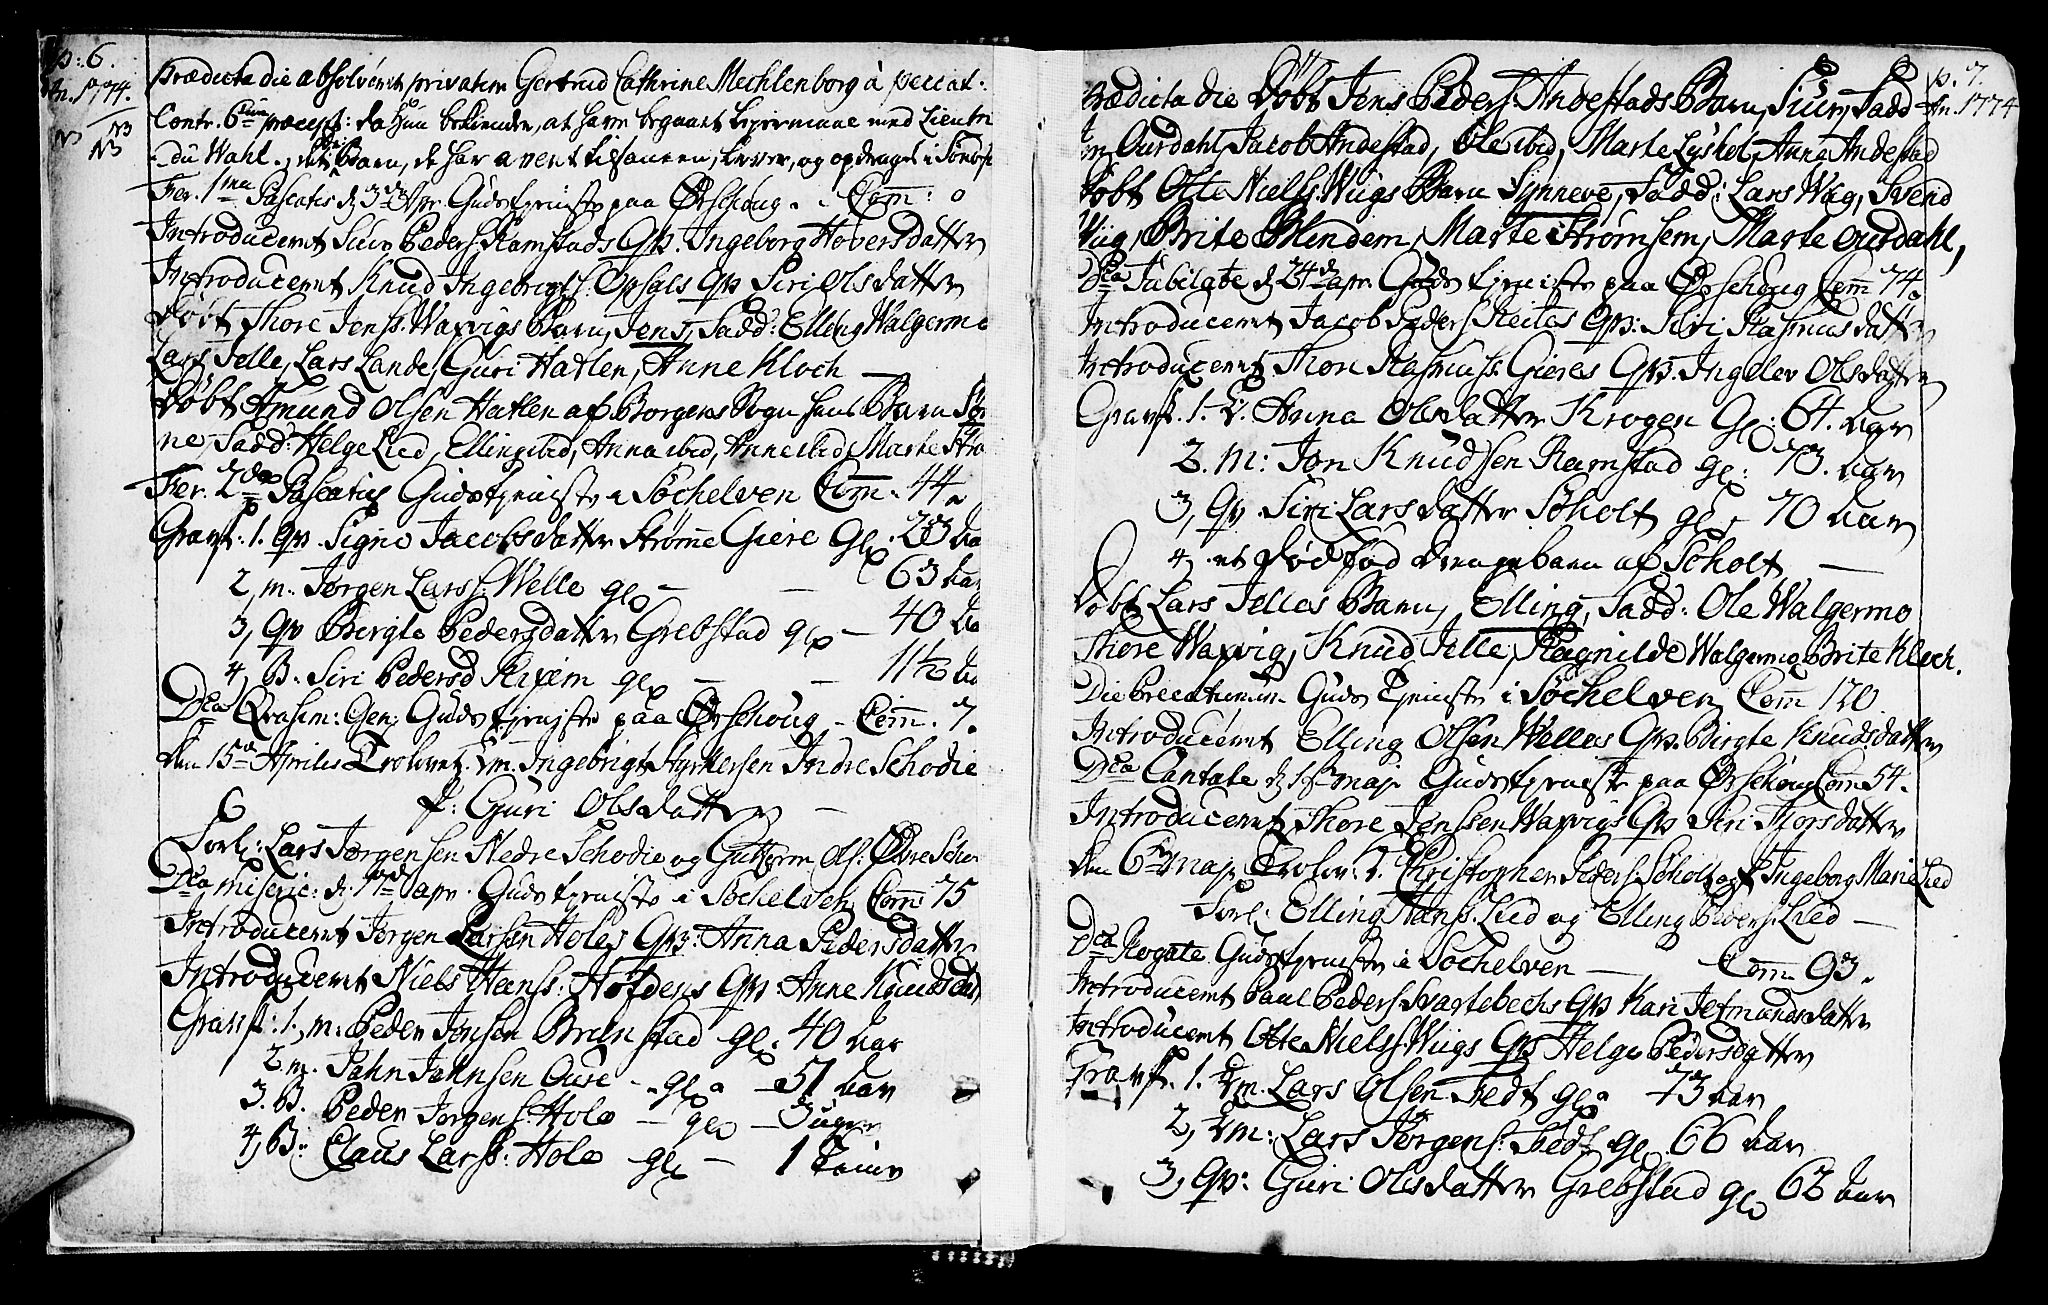 p: 6.
An. 1774.
Prædicta die absolveret privatim Gertrud Cathrine Mechlenborg à peccat:
Contr. 6tum præcept: da hun bekiender, at have begaaet Leiermaal med Lieutn
du Wahl. det Barn, de har avent tilsamen, lever, og opdrages i
Fer. 1ma Paschatis d. 3die Apr. Guds tjeniste paa Ørschoug. - Com: 0
Introduceret Siur Peders. Ramstads Qv. Ingeborg Hoversdatter
Introduceret Knud Ingebrigts. Opsals Qv Siri Olsdatter
Døbt Thore Jenss. Waxvigs Barn, Jens, Fadd: Elling Walgermo
Lars Jelle, Lars Lande, Guri Hatlen, Anne Kloch —
Døbt Amund Olsen Hatlen af Borgens Sogn hans Barn
ne, Fadd: Helge Lied, Elling ibid, Anna ibid, Anne ibid, Marte
Fer. 2da Paschatis Guds tjeniste i Søchelven Com. 44.
Gravf: 1. Qv. Signe Jacobsdatter Strømme Giere Gl. 23 Aa
2, m. Jørgen Larss. Welle gl — — 63 Aar
3, Qv Birgte Pedersdatter Grebstad gl — 40 Aa
4, B. Siri Pedersd Ryxem gl — — 1½ Aa
Dca Qvasim: Gen: Guds tjeniste paa Ørschoug - Com. 7.
den 15de Aprilis Trolovet. Ym. Ingebrigt Styrkersen Indre Schodie
P: Guri Olsdatter —
Forl: Lars Jørgensen Nedre Schodie og Guttorm Ols: Øvre Scho
Dca Miseric: d. 17de Apr. Guds tjeniste i Søchelven Com 75
Introduceret Jørgen Larsen Holes Qv: Anna Pedersdatter
Introduceret Niels Hanss: Hofdens Qv: Anne Knudsdat
Gravf: 1. m: Peder Jonsen Brunstad gl. 40 Aar
2. m. Jahn Jahnsen Aure - gl. — 51 Aar
3. B. Peder Jørgens. Hole — gl — 3 uger
4, B: Claus Larss: Hole gl — 1 time
p. 7.
An. 1774
Prædicta die Døbt Jens Peders. Andestads Barn, Siur, Fadd
Jon Aurdahl, Jacob Andestad, Ole ibid, Marte Lyshol, Anna Andestad
Døbt Otte Nielss. Wiigs Barn Synneve, Fadd: Lars Wiig, Svend
Wiig, Brite Blindem, Marte Strømsem, Marte Aurdahl,
Dca Jubilate d. 24de Apr. Guds tjeniste paa Ørschoug Com 74.
Introduceret Jacob Peders. Reites Qv: Siri Rasmusdatter
Introduceret Thore Rasmuss. Gieres Qv. Ingelev Olsdatter
Gravf. 1. P. Anna Olsdatter Krogen Gl: 64. Aar
2. m: Jon Knudsen Ramstad gl: 73. Aar
3, Qv Siri Larsdatter Søholt gl: 70 Aar
4, et dødfød Drengebarn af Søholt —
Døbt Lars Jelles Barn, Elling, Fadd: Ole Walgermo
Thore Waxvig, Knud Jelle, Ragnilde Walgermo Brite Kloch.
Die Precationum Guds Tjeniste i Søchelven Com 120.
Introduceret Elling Olsen Welles Qv. Birgte Knudsdatter
Dca Cantate d. 1ste maj. Guds tjeniste paa Ørschoug Com 54.
Introduceret Thore Jenssen Waxvigs Qv Siri Thorsdatter
den 6te maj. Trolov: Christopher Peders. Søholt og P Ingeborg Marie Lied
Forl: Elling Hanss. Lied og Elling Peders. Lied —
Dca Rogate Guds tjeniste i Søchelven — Com 93.
Introduceret Paul Peders. Svartebechs Qv Kari Jetmundsdatter
Introduceret Otte Nielss. Wiigs Qv Helge Pedersdatter
Gravf. 1. Ym. Lars Olsen Fedt gl. 73 Aar
2, Ym: Lars Jørgens. Fedt gl 66 Aar
3, Qv: Guri Olsdatter Grebstad gl 62 Aar